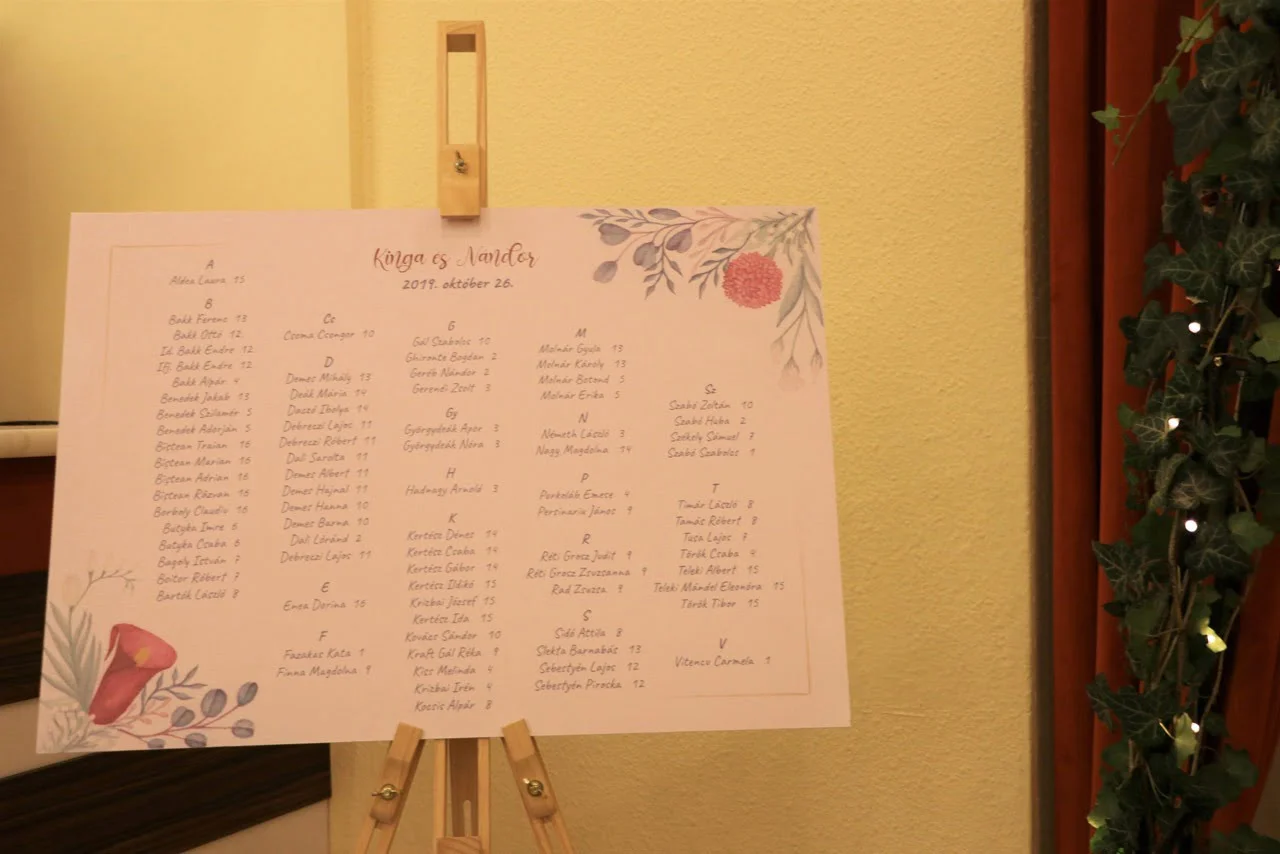 Kinga és Nándor
2019. október 26.
A
Aldea Laura 15
B
Bakk Ferenc 13
Bakk Ottó 12
Id. Bakk Endre 12
Ifj. Bakk Endre 12
Bakk Alpár 4
Benedek Jakab 13
Benedek Szilamér 5
Benedek Adorján 5
Bistean Traian 16
Bistean Marian 16
Bistean Adrian 16
Bistean Răzvan 16
Borbely Claudiu 16
Butyka Imre 6
Butyka Csaba 6
Bagoly István 7
Boitor Róbert 7
Bartók László 8
Cs
Csoma Csongor 10
D
Demes Mihály 13
Deák Mária 14
Daczó Ibolya 14
Debreczi Lajos 11
Debreczi Róbert 11
Dali Sarolta 11
Demes Albert 11
Demes Hajnal 11
Demes Hanna 10
Demes Barna 10
Dali Lóránd 2
Debreczi Lajos 11
E
Enea Dorina 16
F
Fazakas Kata 1
Finna Magdolna 9
G
Gál Szabolcs 10
Ghironte Bogdan 2
Geréb Nándor 2
Gerendi Zsolt 3
Gy
Györgydeák Apor 3
Györgydeák Nóra 3
H
Hadnagy Arnold 3
K
Kertész Dénes 14
Kertész Csaba 14
Kertész Gábor 14
Kertész Ildikó 15
Krizbai József 15
Kertész Ida 15
Kovázs Sándor 10
Kraft Gál Réka 9
Kiss Melinda 4
Krizbai Irén 4
Kocsis Alpár 8
M
Molnár Gyula 13
Molnár Károly 13
Molnár Botond 5
Molnár Erika 5
N
Németh László 3
Nagy Magdolna 14
P
Porkoláb Emese 4
Persinariu János 9
R
Réti Grosz Judit 9
Réti Grosz Zsuzsanna 9
Rad Zsuzsa 9
S
Sidó Attila 8
Slekta Barnabás 13
Sebestyén Lajos 12
Sebestyén Piroska 12
Sz
Szabó Zoltán 10
Szabó Huba 2
Székely Sámuel 7
Szabó Szabolcs 1
T
Timár László 8
Tamás Róbert 8
Tusa Lajos 7
Török Csaba 4
Teleki Albert 15
Teleki Mándel Eleonóra 15
Török Tibor 15
V
Vitencu Carmela 1